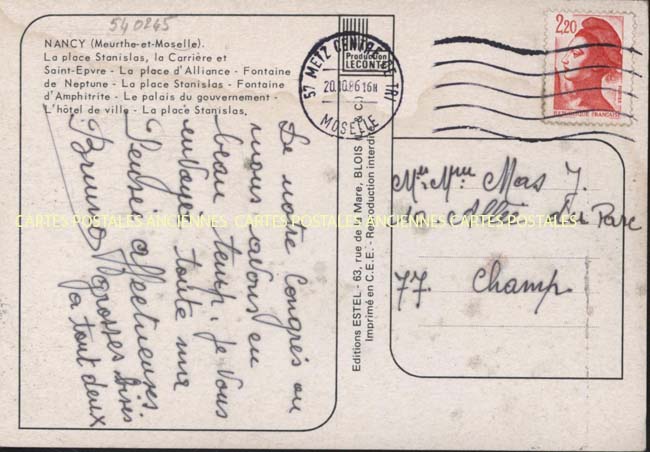 540245
NANCY (Meurthe-et-Moselle).
La place Stanislas, la Carrière et
Saint-Epvre - La place d'Alliance - Fontaine
de Neptune - La place Stanislas - Fontaine
d'Amphitrite - Le palais du gouvernement -
L'hôtel de ville - La place Stanislas.
De notre Congrés ou
nous avons eu
beau temps. Je vous
envoye toute ma
Pensée affectueuses.
grosses bises
a tout deux
Production
LECONTE
57 METZ CENTRE DE TRI
20.10.86 16H
MOSELLE
2,20
REPUBLIQUE FRANÇAISE
Editions ESTEL - 63, rue de la Mare, BLOIS
Imprimé en C.E.E. - Reproduction interdite
Mme Mas J.
Allée du Parc
77. Champ.
CARTES POSTALES ANCIENNES CARTES POSTALES ANCIENNES CARTES POSTALES ANCIENNES